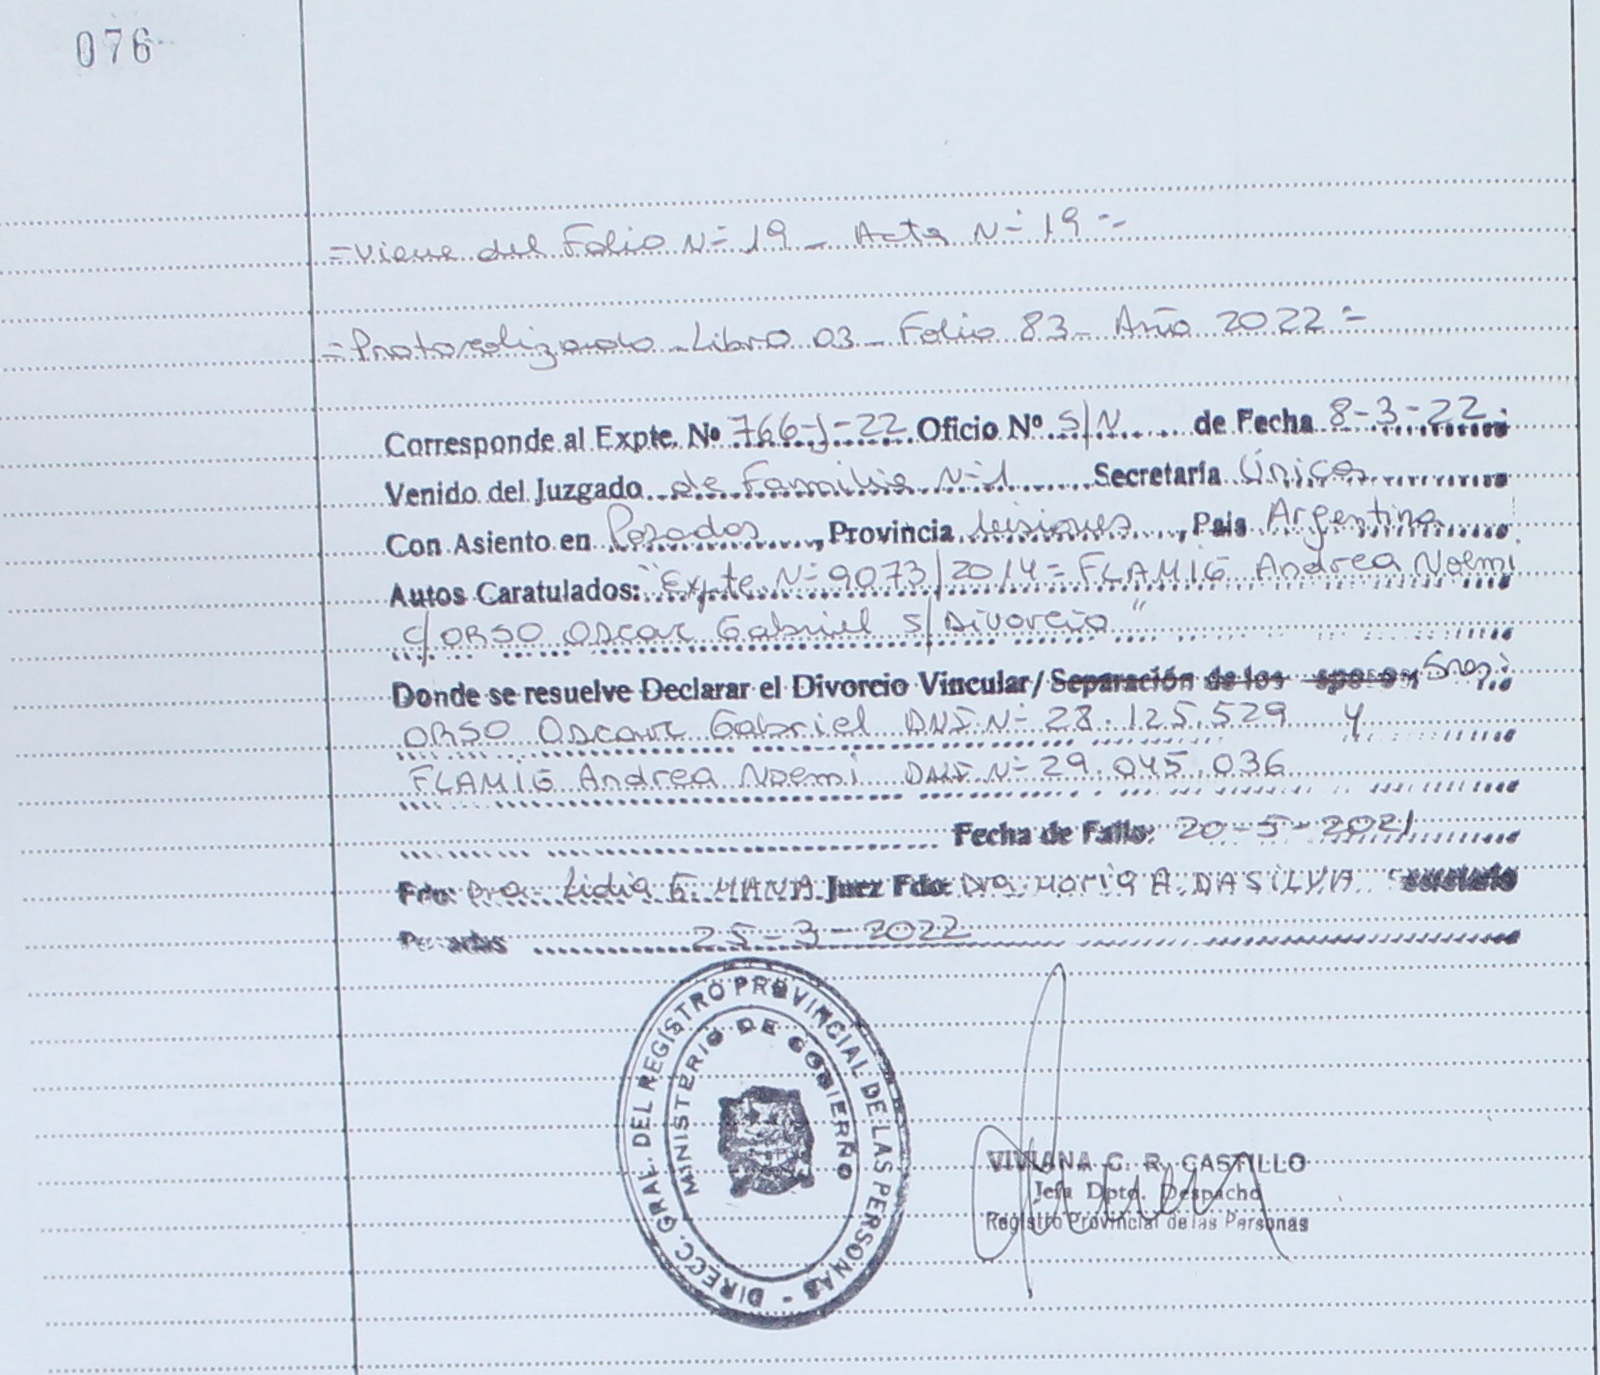 076
=Viene del Folio Nº 19 _ Acta Nº 19 =
=Protocolizado _ Libro 03 _ Folio 83 _ Año 2022 =
Corresponde al Expte. Nº 766-J-22 Oficio Nº S/N de Fecha 8-3-22
Venido del Juzgado de Familia Nº 1 Secretaría Única
Con Asiento en Posadas, Provincia Misiones, Pais Argentina
Autos Caratulados: "Expte Nº 9073/2014 = FLAMIG Andrea Noemi
C/ ORSO Oscar Gabriel S/ Divorcio"
Donde se resuelve Declarar el Divorcio Vincular/ Separación de los Sres:
ORSO Oscar Gabriel DNI Nº 28.125.529 y
FLAMIG Andrea Noemi DNI Nº 29.045.036
Fecha de Fallo: 20-5-2021
Fdo: Dra. Lidia E. MANA Juez Fdo: Dra. Maria A. DASILVA
25-3-2022
DIRECC. GRAL. DEL REGISTRO PROVINCIAL DE LAS PERSONAS -
MINISTERIO DE GOBIERNO
VIVIANA C. R. CASTILLO
Jefa Dpto. Despacho
Registro Provincial de las Personas